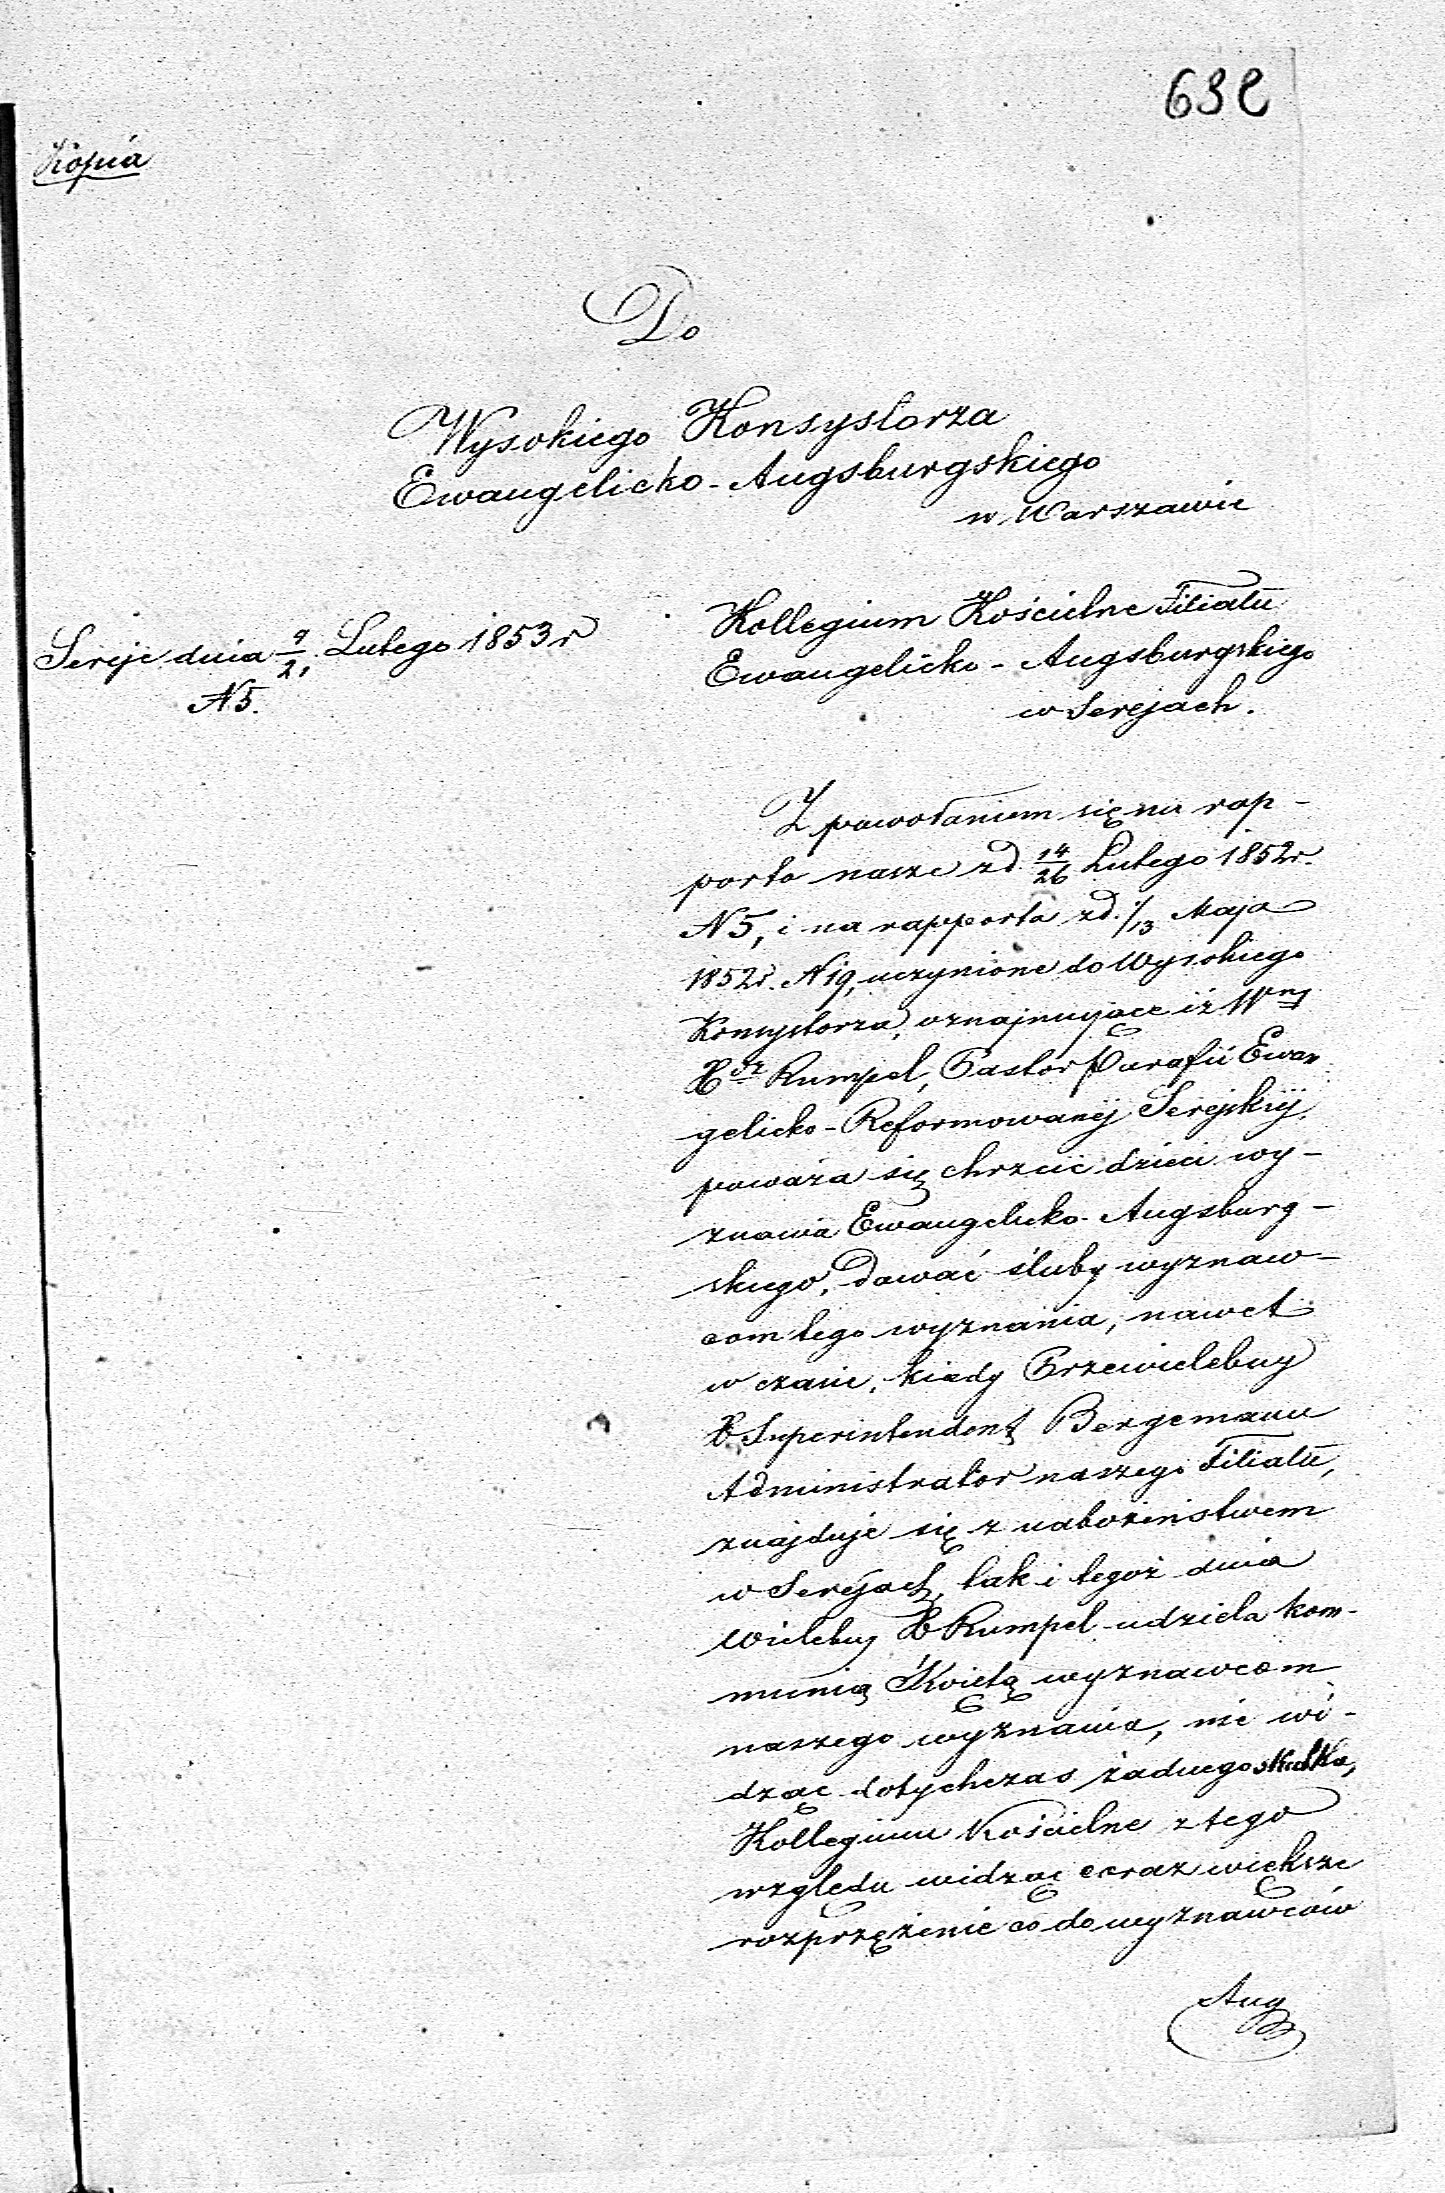 632
Kopia
Do
Wysokiego Konsystorza
Ewangelicko-Augsburgskiego
w Warszawie
Sereje dnia 9/21 Lutego 1853 r
N 5.
Kollegium Kościelne Filiału
Ewangelicko-Augsburgskiego
w Serejach.
Z powołaniem się na rap-
porta nasze z d. 14/26 Lutego 1852 r.
N 5, i na rapporta z d. 1/13 Maja
1852 r. N 19, uczynione do Wysokiego
Konsystorza, oznajmujące iż Wny
X dz Rumpel, Pastor Parafii Ewan
gelicko-Reformowanéj Serejskiéj,
poważa się chrzcić dzieci wy-
znania Ewangelicko-Augsburg-
skiego, dawać śluby wyznaw-
com tego wyznania, nawet
w czasie, kiedy Przewielebny
X Superintendent Bergemann
Administrator naszego Filiału,
znajduje się z nabożeństwem
w Serejach, tak i tegoż dnia
Wielebny X Rumpel udziela kom-
munią Świetą wyznawcom
naszego wyznania, nie wi-
dząc dotychczas żadnego skutku,
Kollegium Kościelne z tego
względu widząc coraz większe
rozprzężenie co do wyznawców
Aug